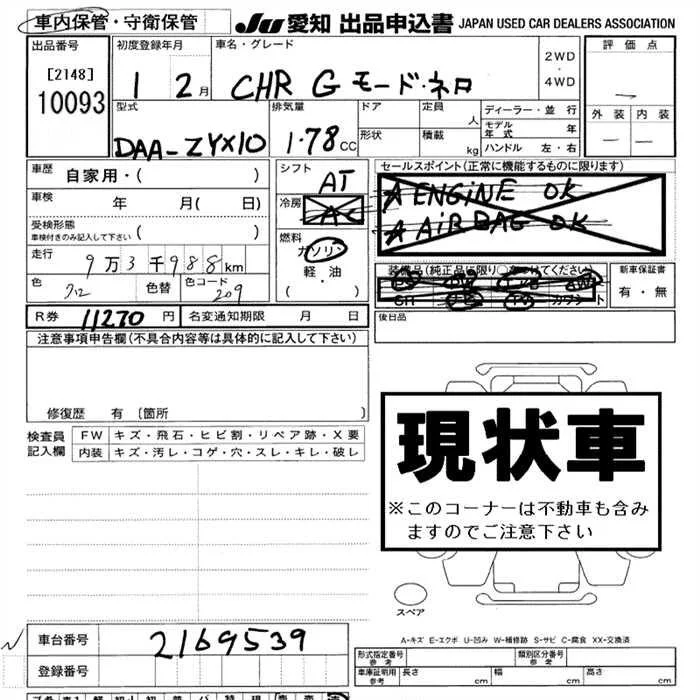 車内保管・守衛保管 JU 愛知 出品申込書 JAPAN USED CAR DEALERS ASSOCIATION
出品番号 初度登録年月 車名・グレード 評価点
[2148] 1 2月 CHR G モード・ネロ 2WD・4WD
10093 ー
型式 排気量 ドア 定員 人 ディーラー・並 行 外装 内装
モデル年式 年
DAA-ZYX10 1.78 CC 形状 積載 kg ハンドル 左・右 ー ー
車歴 自家用・( ) シフト AT セールスポイント(正常に機能するものに限ります)
車検 年 月( 日) 冷房 AC A ENGINE OK
A AIRBAG OK
受検形態 車検付きのみ記入して下さい ( ) 燃料 ガソリン・軽・油 ( ・ )
走行 9万3千988km 装備品(純正品に限り○をつけてください) 新車保証書
色 クロ 色替 色コード 209 有・無
R券 11270 円 名変通知期限 月 日 後日品
注意事項申告欄(不具合内容等は具体的に記入して下さい)
修復歴 有 〔箇所 〕
検査員記入欄 FW キズ・飛石・ヒビ割・リペア跡・X要
内装 キズ・汚レ・コゲ・穴・スレ・キレ・破レ
現状車
※このコーナーは不動車も含み
ますのでご注意下さい
スペア
A-キズ E-エクボ U-凹み W-補修跡 S-サビ C-腐食 XX-交換済
車台番号 2169539
登録番号
形式指定番号 参考 類別区分番号 参考
車庫証明用 参考 長さ cm 幅 cm 高さ cm